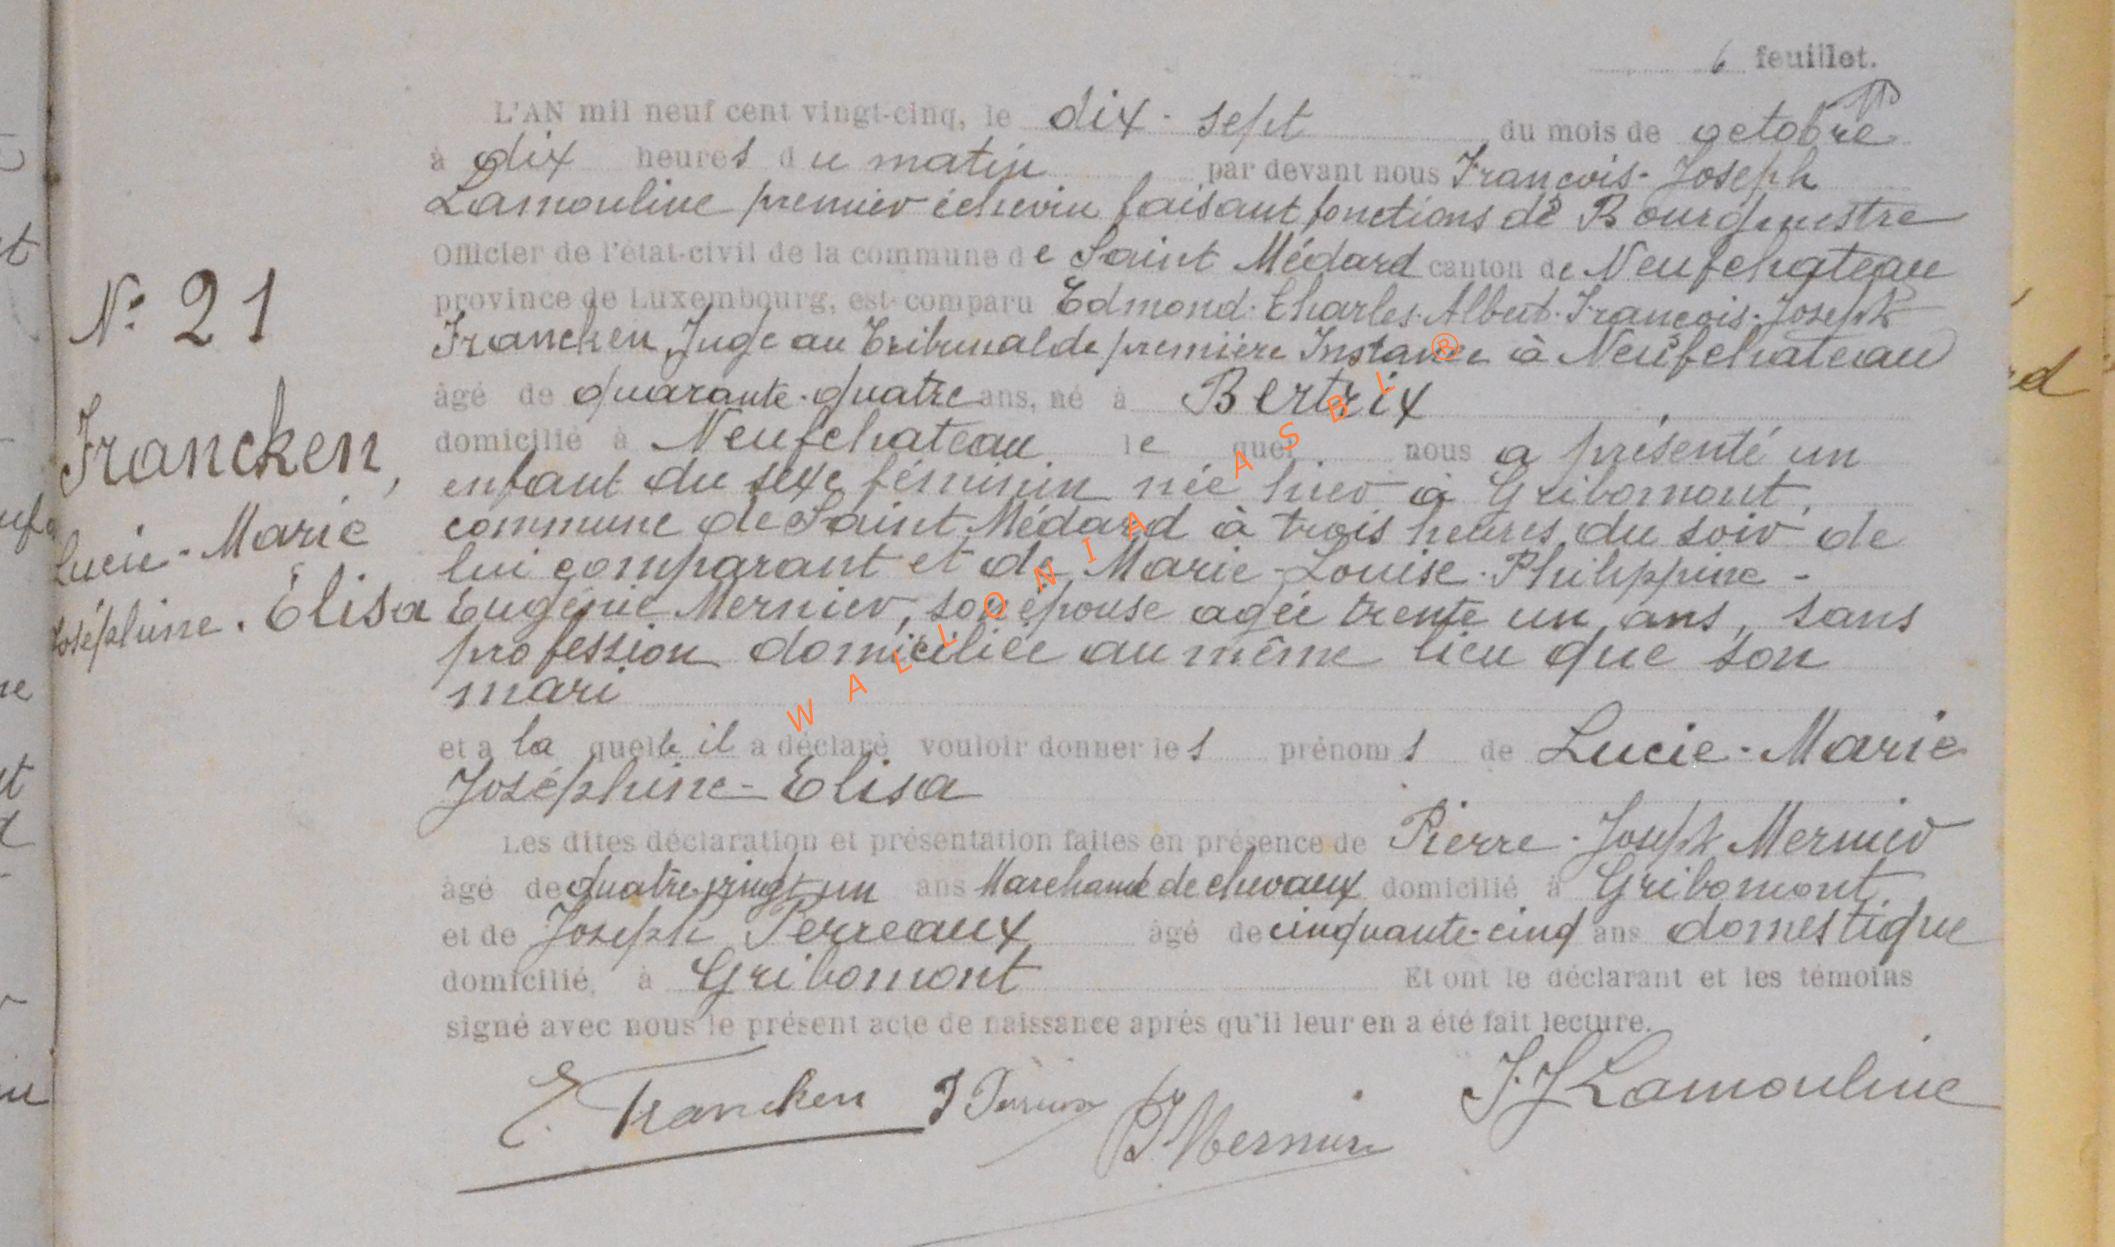 6 feuillet.
L'AN mil neuf cent vingt-cinq, le dix-sept du mois de octobre
à dix heures du matin par devant nous François-Joseph
Lamouline premier échevin faisant fonctions de Bourgmestre
Officier de l'état-civil de la commune de Saint Médard canton de Neufchateau
province de Luxembourg, est comparu Edmond-Charles-Albert-François-Joseph
Francken, Juge au Tribunal de première Instance à Neufchateau
âgé de quarante-quatre ans, né à Bertrix
domicilié à Neufchateau le quel nous a présenté un
enfant du sexe féminin née hier à Gribomont,
commune de Saint Médard à trois heures du soir de
lui comparant et de Marie-Louise-Philippine-
Eugénie Mernier, son épouse agée trente un ans, sans
profession domiciliée au même lieu que son
mari
et a la quelle il a déclaré vouloir donner les prénoms de Lucie-Marie
Joséphine-Elisa
Les dites déclaration et présentation faites en présence de Pierre-Joseph Mernier
âgé de quatre-vingt-un ans Marchand de chevaux domicilié à Gribomont
et de Joseph Perreaux âgé de cinquante-cinq ans domestique
domicilié, à Gribomont Et ont le déclarant et les témoins
signé avec nous le présent acte de naissance après qu'il leur en a été fait lecture.
E. Francken J Perreaux PJ Mernier F.J Lamouline
N° 21
Francken,
Lucie-Marie
Joséphine-Elisa
WALLONIA ASBL ®